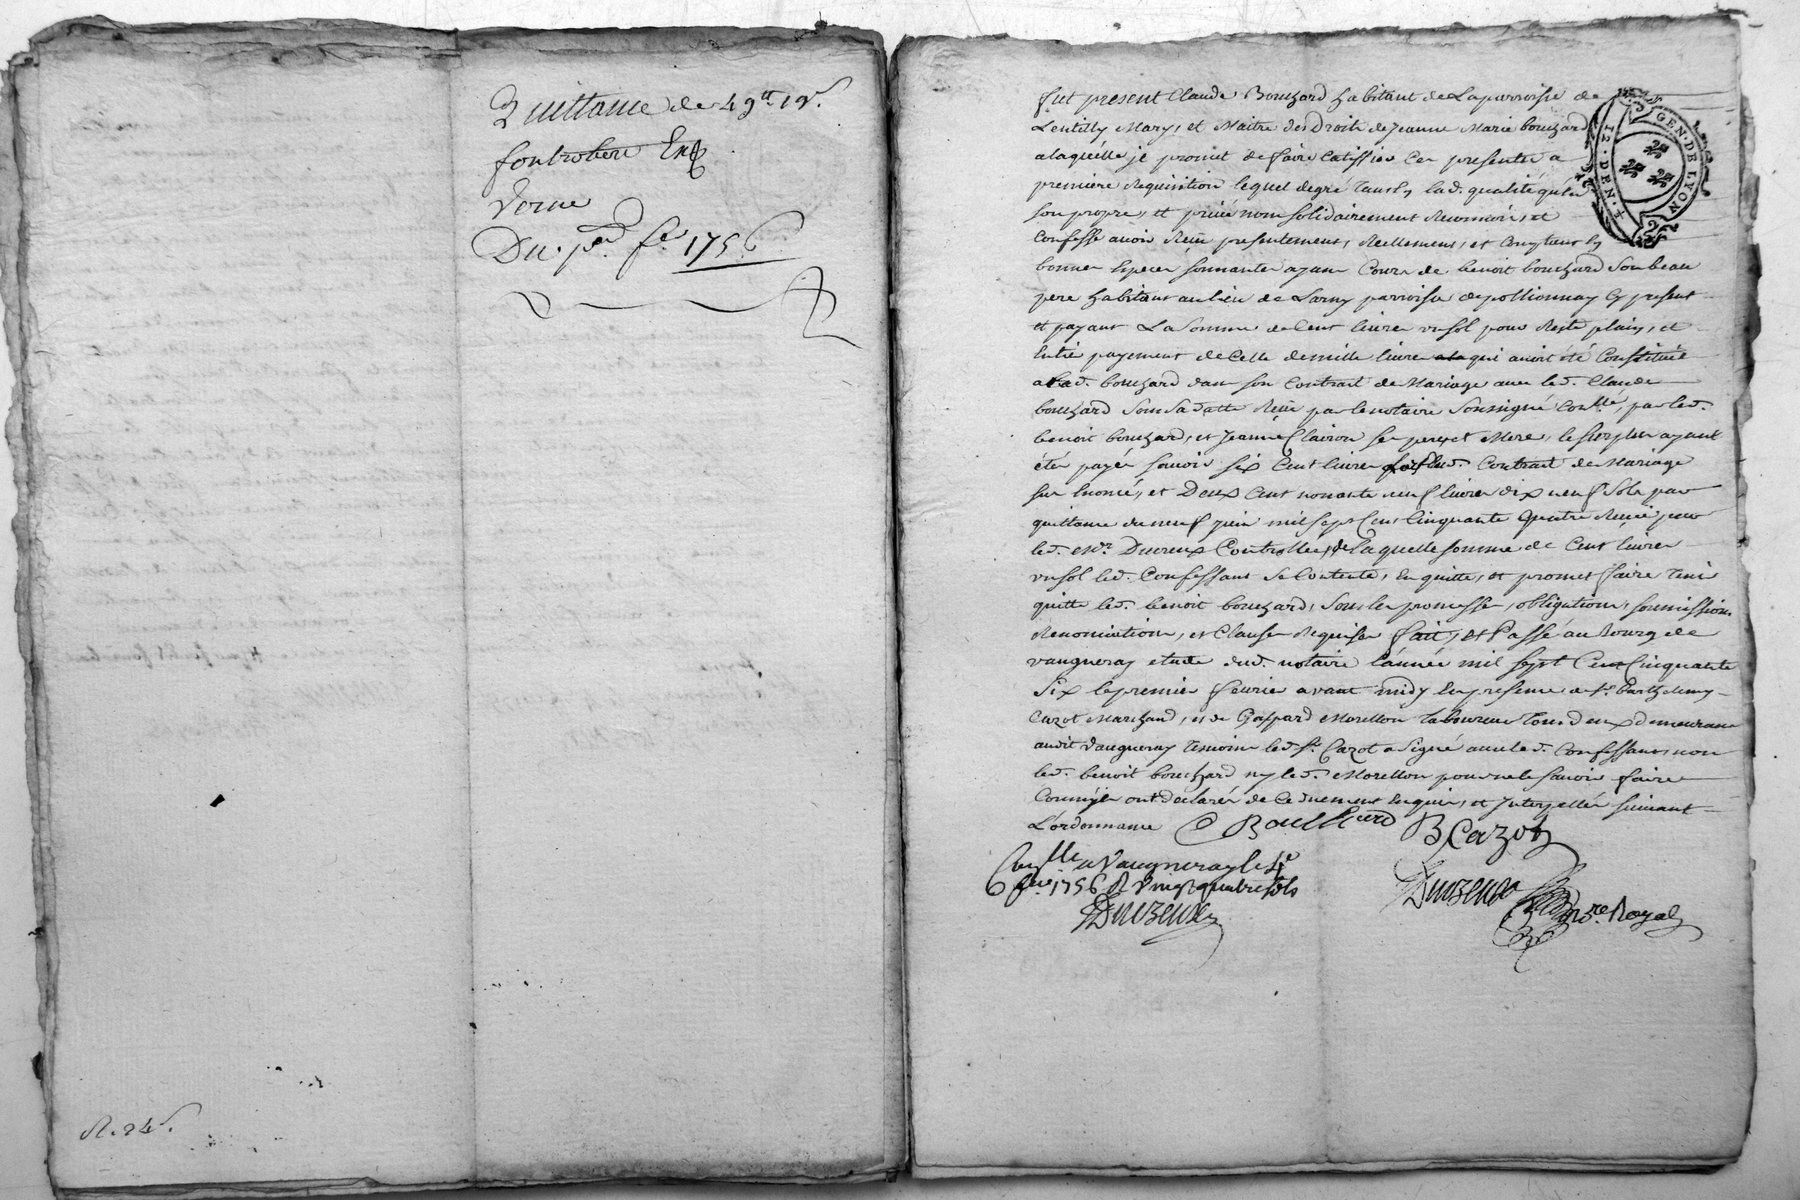 Quittance de 49ᵗᵗ 19ˢ.
fontrobert Et
Verne
Du. pᵉʳ fᵉʳ 1756
R. 24ˢ.
GEN. DE LYON
12. DEN.
fut present Claude Bouchard habitant de La parroisse de
Lentilly Mary, et Maitre des Droits de Jeanne Marie bouchard
a laquelle je promet de faire Ratiffier Ces presentes a
premiere Requisition lequel de gré tant en lad. qualité qu'en
son propre, et privé nom solidairement Reconnoit, et
Confesse avoir Reçu presentement, Reellement, et Comptant en
bonnes Especes sonnantes ayant Cours de benoit bouchard son beau
pere habitant au lieu de Larny parroisse de pollionnay Cy present
et payant La Somme de Cent livres un sol pour Reste plain, et
Entié payement de Celle de mille livres qui avoit été Constitué
a lad. bouchard dans son Contrait de Mariage avec led. Claude
bouchard sous sa datte Reçu par le notaire soussigné Conllé, par led.
benoit bouchard, et Jeanne Clairon ses pere, et Mere, le surplus ayant
étés payés savoir six Cent livres par led. Contrait de Mariage
sur Enoncé, et Deux Cent nonante neuf livres dix neuf Sols par
quittance du neuf juin mil sept Cent Cinquante Quatre Reçue par
led. Mᵉ. Ducreux Controllée, de laquelle somme de Cent livres
un sol led. Confessant Se Contente, En quitte, et promet faire tenir
quitte led. benoit bouchard, sous les promesses, obligations, soumissions
Renonciations, et Clauses Requises fait, et Passé au Bourg de
vaugneray etude dud. notaire l'année mil sept Cent Cinquante
Six le premier fevrier avant midy En presence de Sʳ. Barthelemy
Cazot Marchand, et de Gaspard Morellon Laboureur tous deux demeurant
audit Vaugneray temoins led. Sʳ. Cazot a Signé avec led. Confessant, non
led. benoit bouchard ny led. Morellon pour ne le savoir faire
Comme ils ont declarés de Ce duement Enquis, et Interpellés suivant
L'ordonnance C Bouchard B Cazot
Conllé a Vaugneray le 4ᵉ
fᵉʳ 1756 R Vingt quatre sols
Ducreux nʳᵉ. Royal
Ducreux